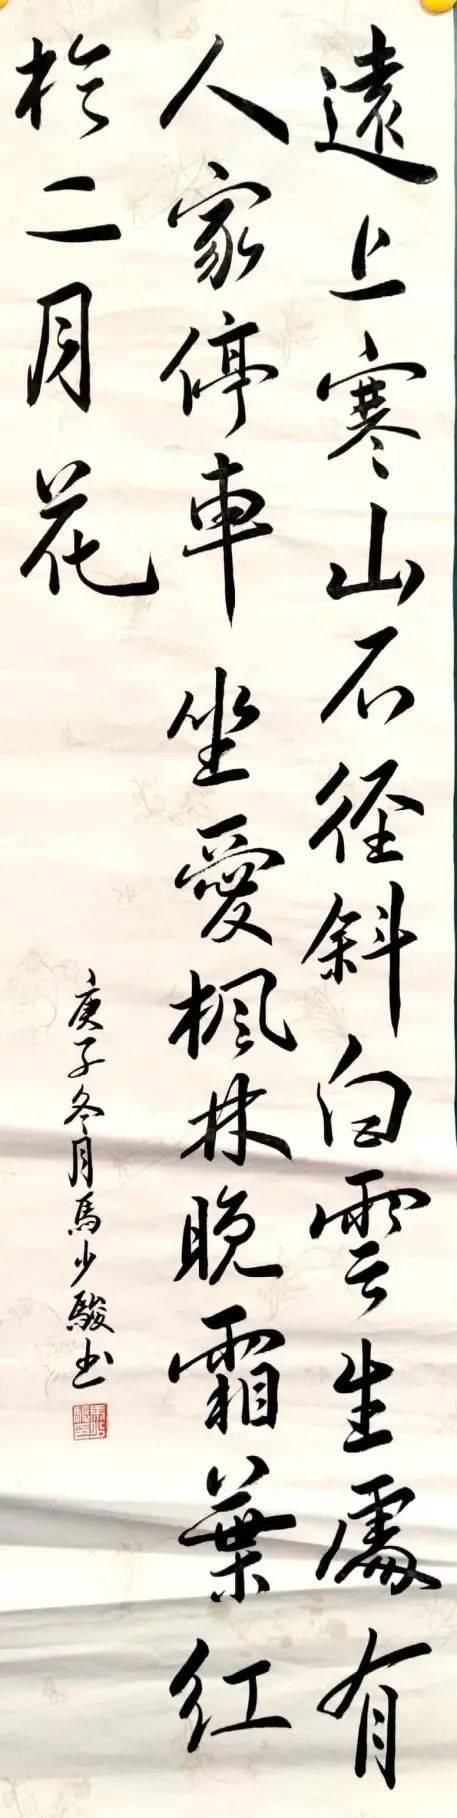 遠上寒山石径斜白雲生處有
人家停車坐愛楓林晚霜葉红
於二月花
庚子冬月馬少駿书